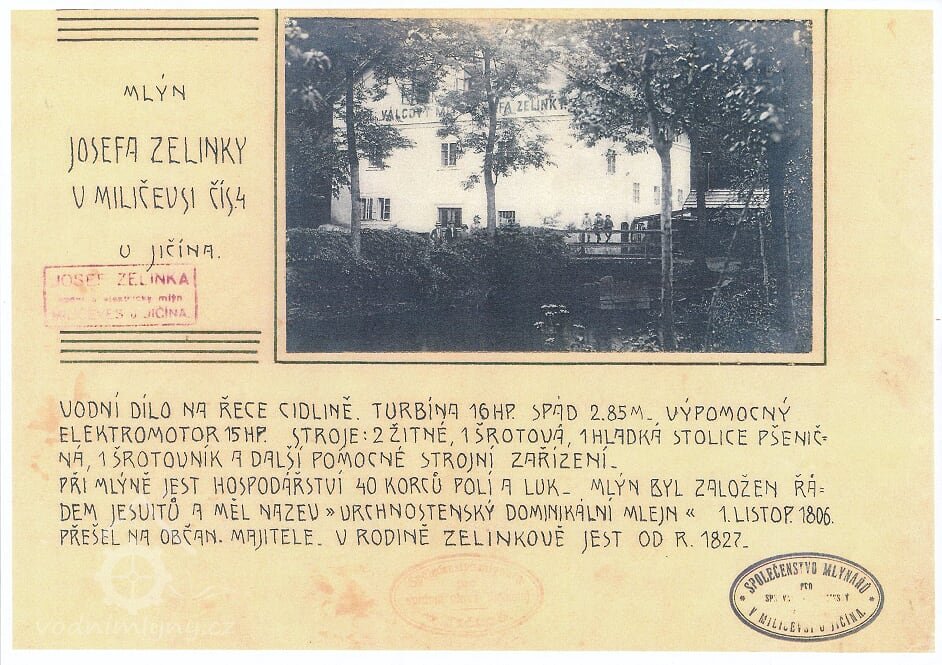 MLÝN
JOSEFA ZELINKY
V MILIČEVSI ČÍS4
U JIČÍNA.
JOSEF ZELINKA
elektrický mlýn
MILIČEVES u JIČÍNA.
VÁLCOVÝ FA ZELINKY
VODNÍ DÍLO NA ŘECE CIDLINĚ. TURBÍNA 16 HP. SPÁD 2.85M. VÝPOMOCNÝ
ELEKTROMOTOR 15 HP. STROJE: 2 ŽITNÉ, 1 ŠROTOVÁ, 1 HLADKÁ STOLICE PŠENIČ=
NÁ, 1 ŠROTOVNÍK A DALŠÍ POMOCNÉ STROJNÍ ZAŘÍZENÍ.
PŘI MLÝNĚ JEST HOSPODÁŘSTVÍ 40 KORCŮ POLÍ A LUK. MLÝN BYL ZALOŽEN ŘÁ=
DEM JESUITŮ A MĚL NÁZEV » VRCHNOSTENSKÝ DOMINIKÁLNÍ MLEJN « 1. LISTOP. 1806.
PŘEŠEL NA OBČAN. MAJITELE. V RODINĚ ZELINKOVĚ JEST OD R. 1827.
SPOLEČENSTVO MLYNÁŘŮ
PRO
V MILIČEVSI U JIČÍNA.
vodnimlyny.cz